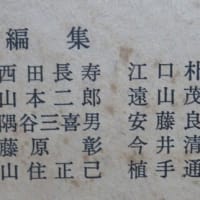 編集
西田長寿 江口朴
山本二郎 遠山茂
隅谷三喜男 安藤良
藤原彰 今井清
山住正己 植手通